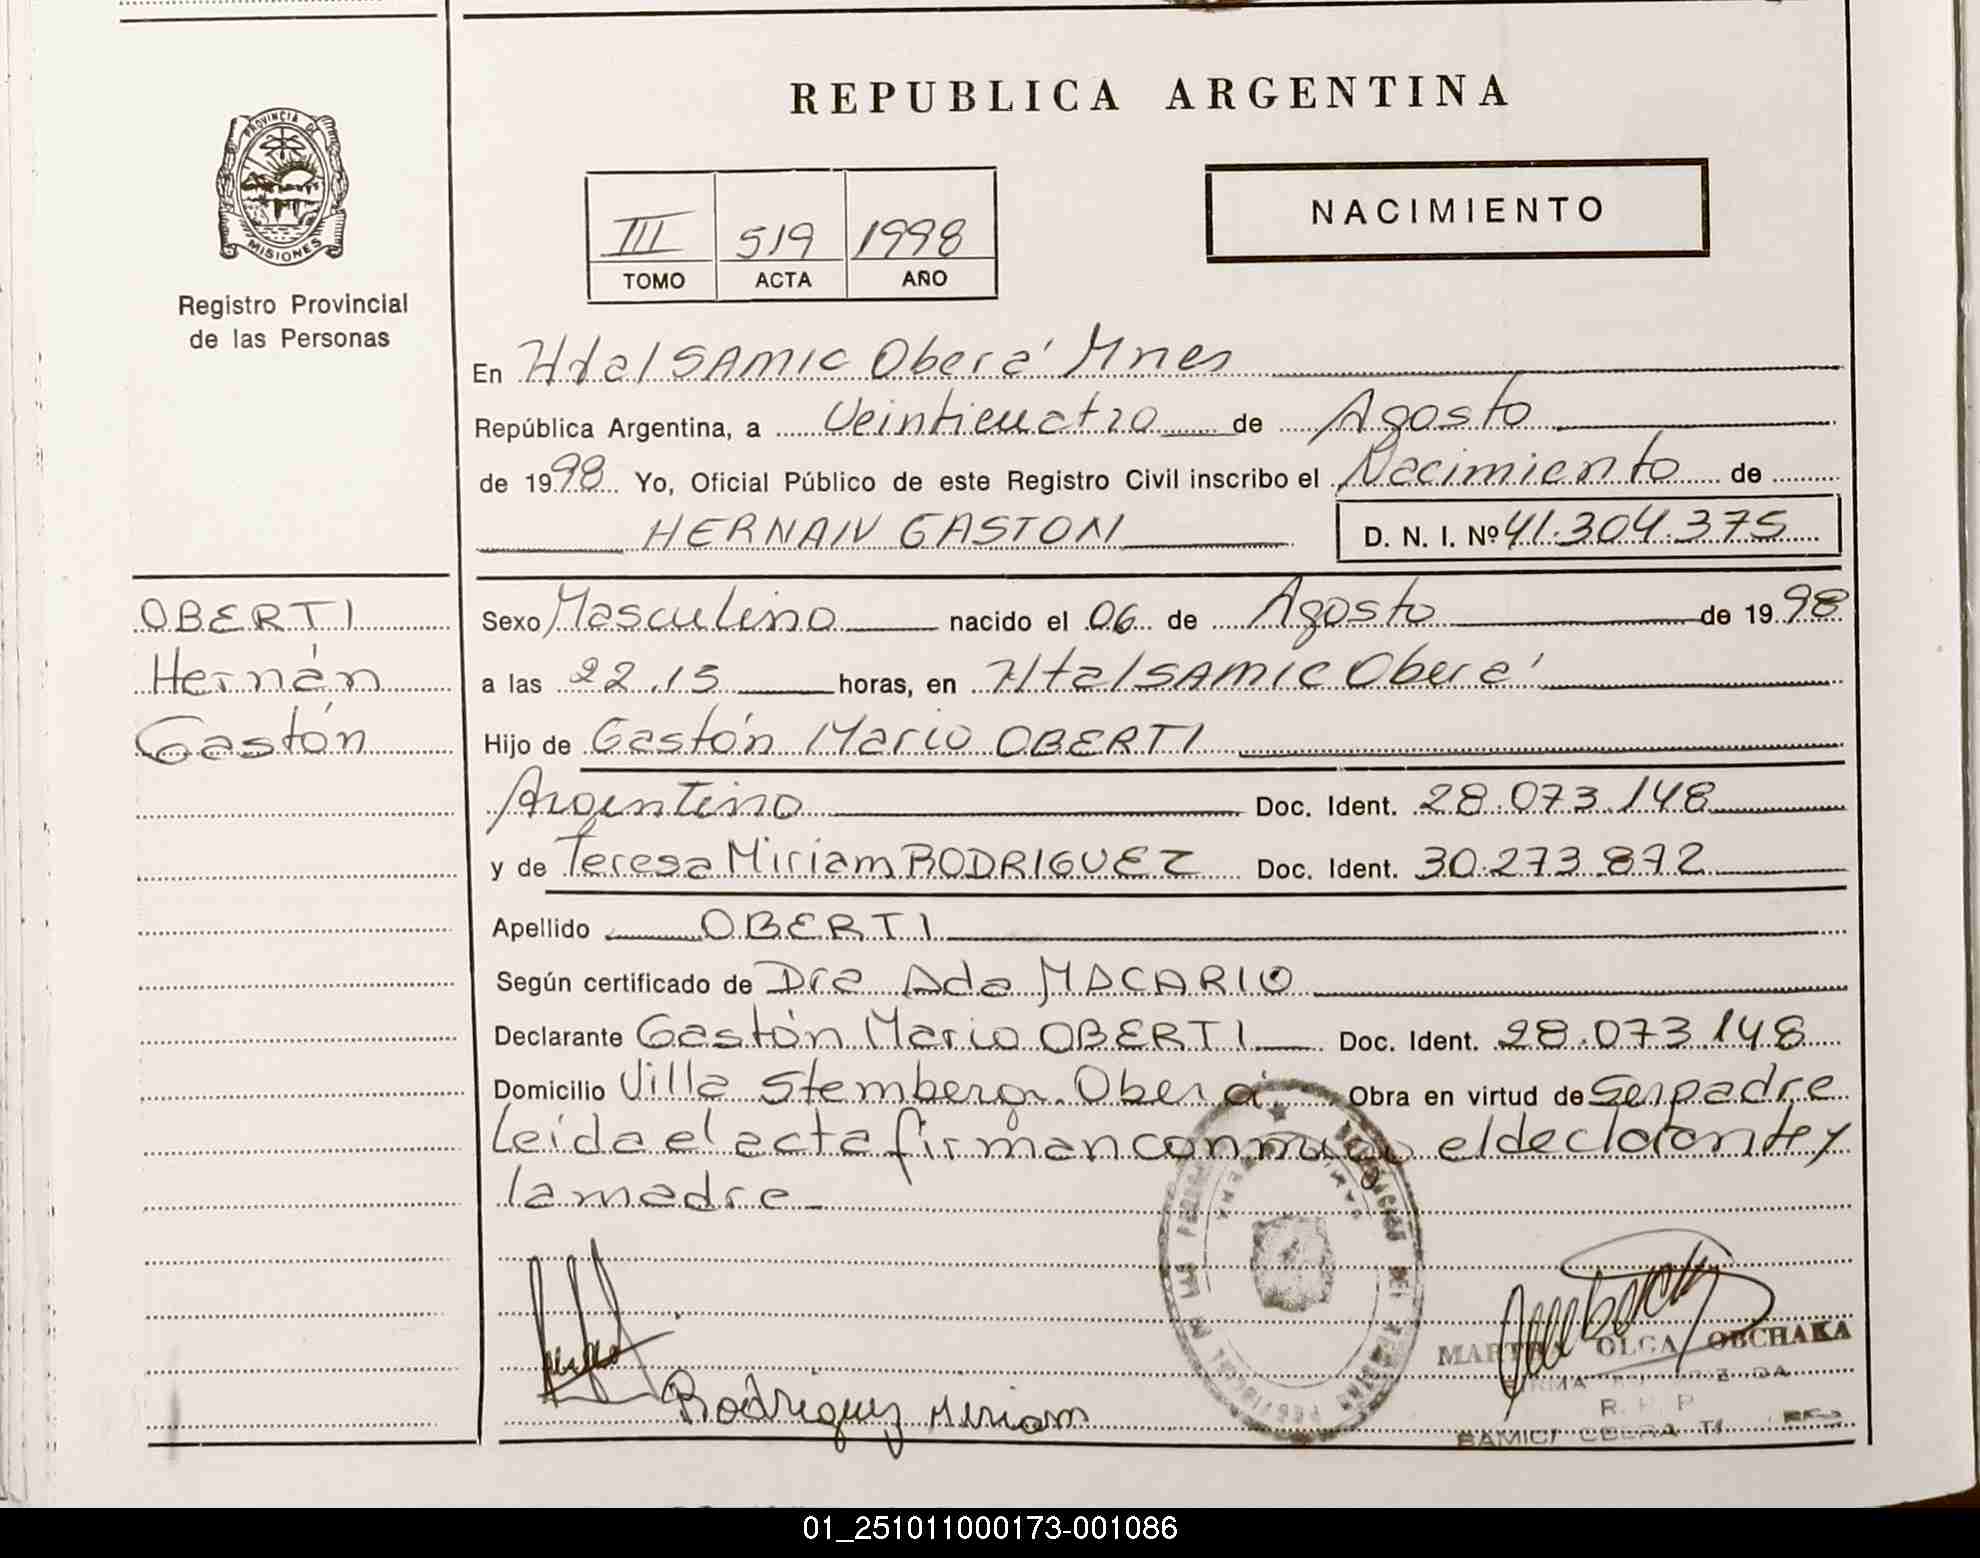 REPUBLICA ARGENTINA
PROVINCIA DE
MISIONES
Registro Provincial
de las Personas
III 519 1998
TOMO ACTA AÑO
NACIMIENTO
En Htal SAMIC Oberá Mnes
República Argentina, a Veinticuatro de Agosto
de 1998 Yo, Oficial Público de este Registro Civil inscribo el Nacimiento de
HERNAN GASTON D. N. I. Nº 41.304.375
OBERTI
Hernán
Gastón
Sexo Masculino nacido el 06 de Agosto de 1998
a las 22.15 horas, en Htal SAMIC Oberá
Hijo de Gastón Mario OBERTI
Argentino Doc. Ident. 28.073.148
y de Teresa Miriam RODRIGUEZ Doc. Ident. 30.273.872
Apellido OBERTI
Según certificado de Dra Ada MACARIO
Declarante Gastón Mario OBERTI Doc. Ident. 28.073.148
Domicilio Villa Stemberg. Oberá Obra en virtud de Ser padre
Leída el acta firman conmigo el declarante y
la madre
Rodriguez Miriam
MARTHA OLGA OBCHAKA
R. P. P
SAMIC
01_251011000173-001086